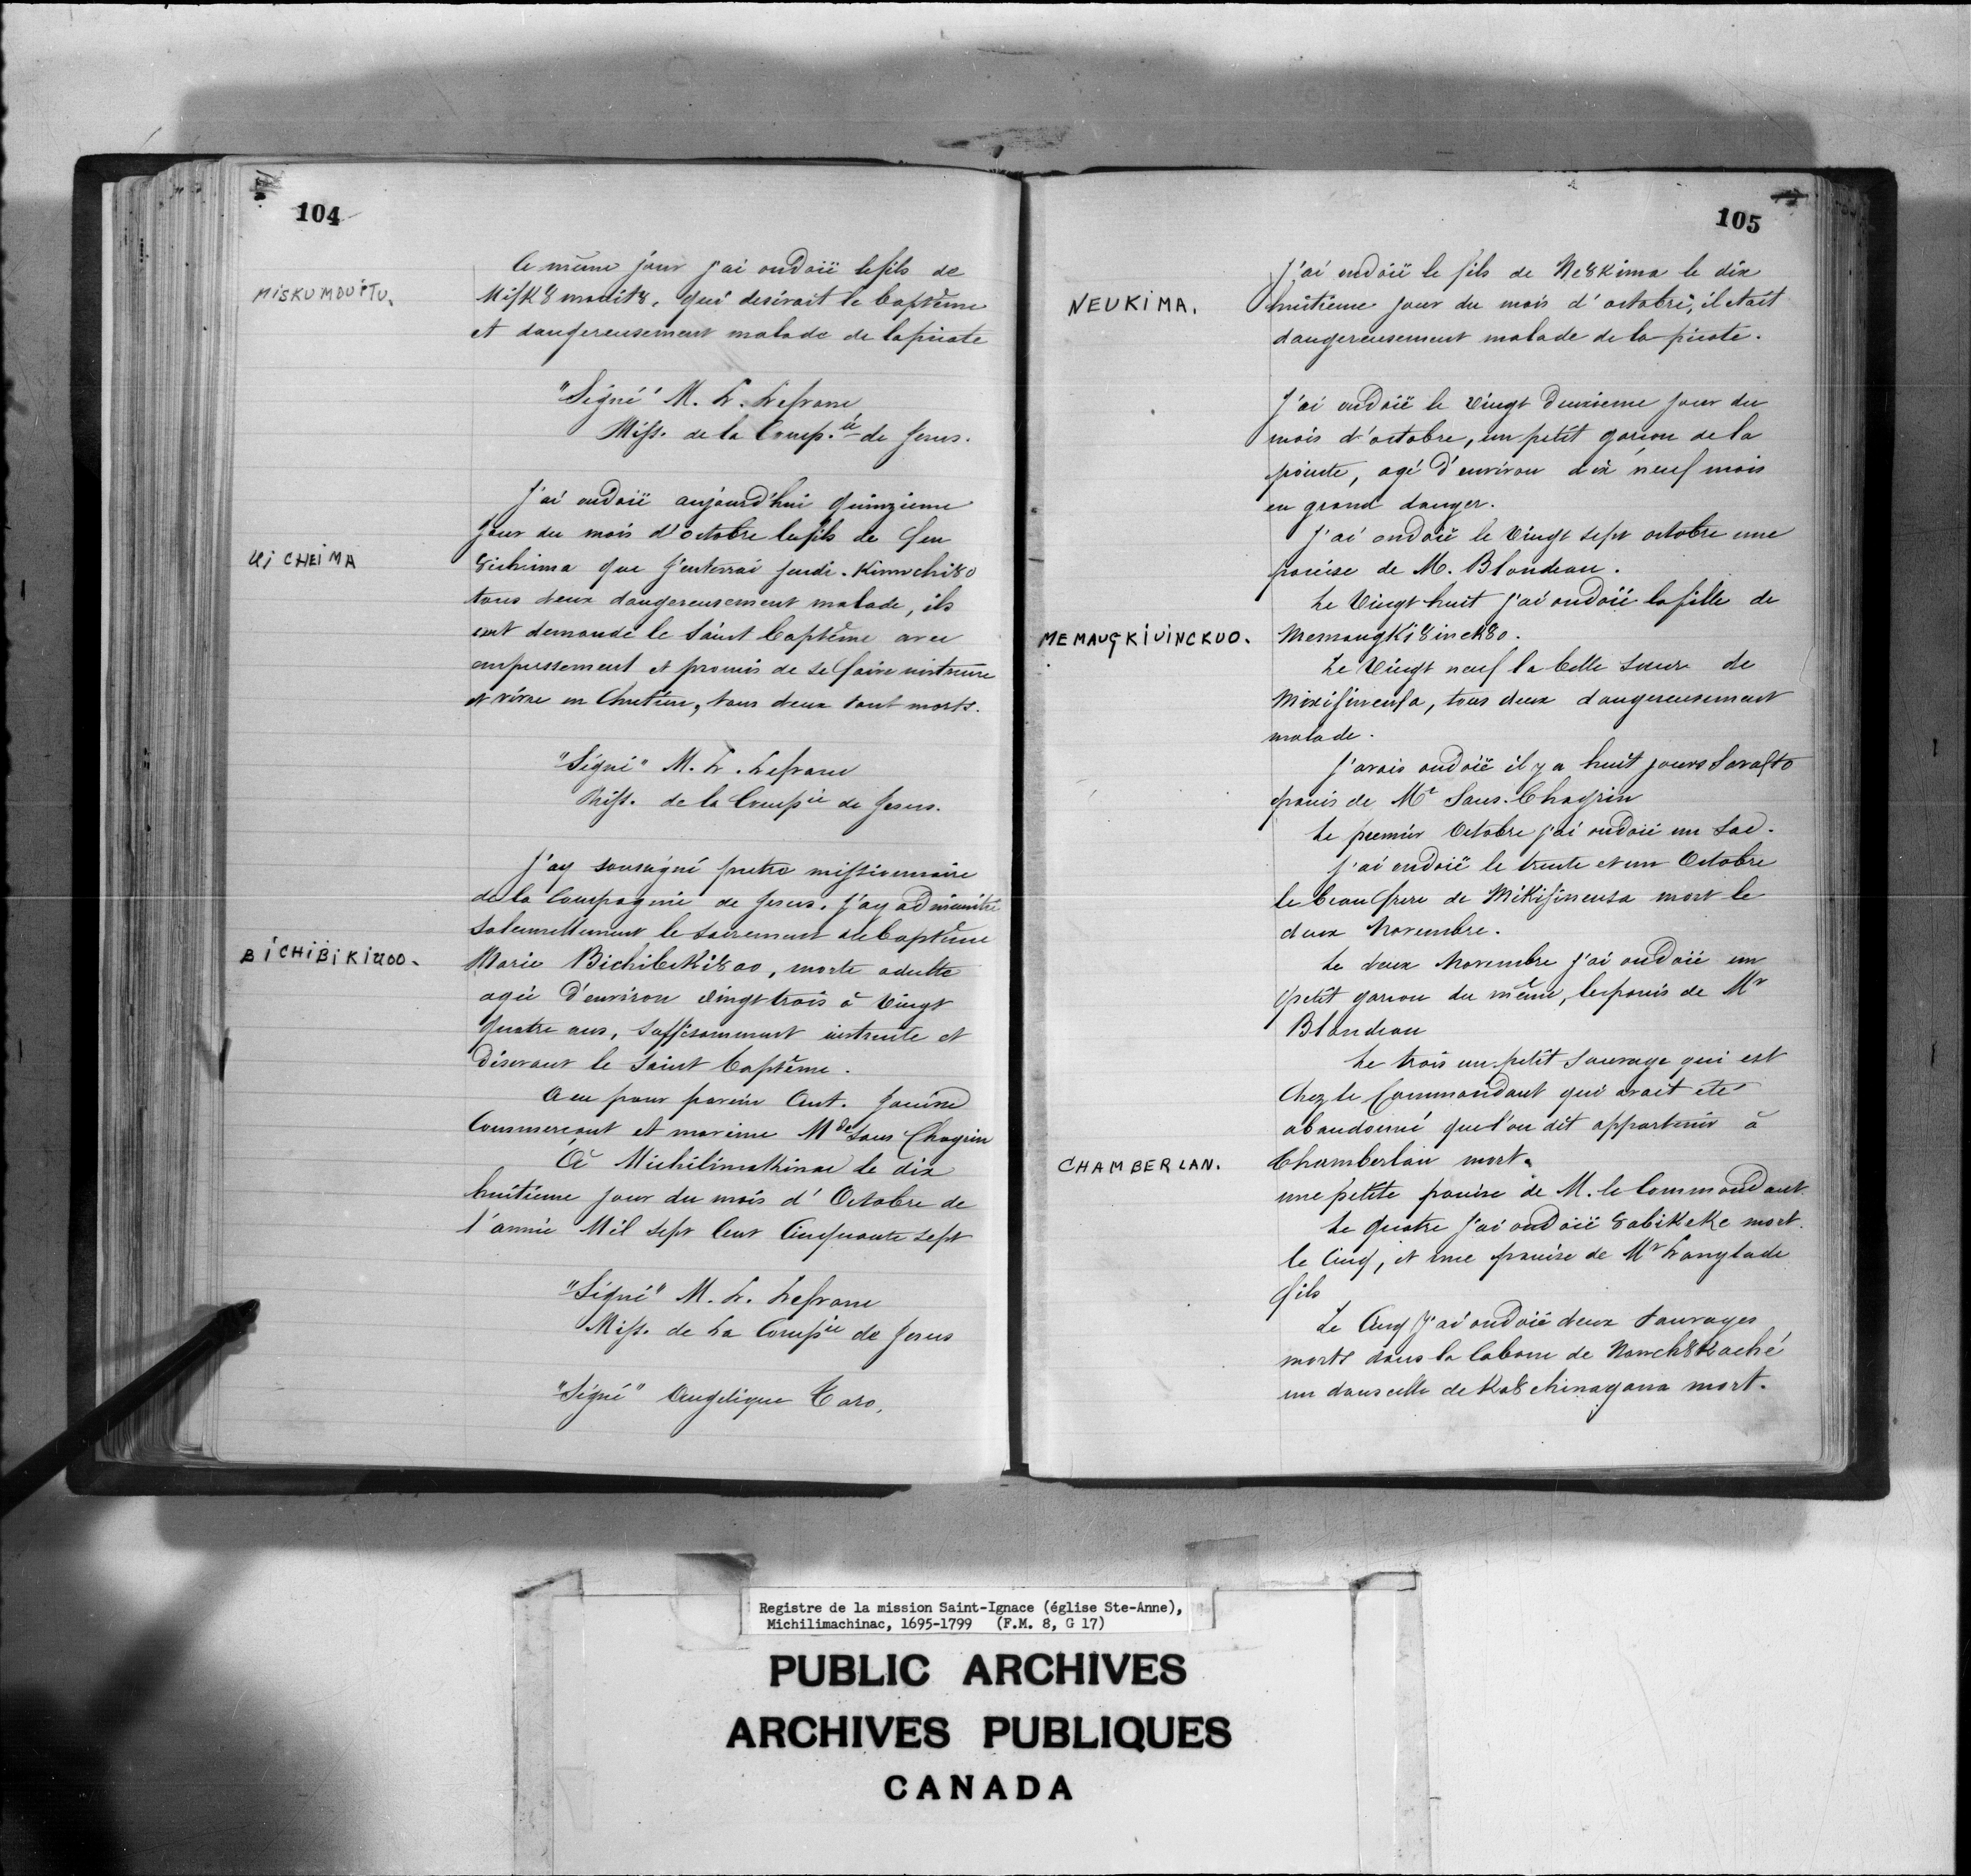 104
MISKUMOUITU.
Ce même jour j'ai ondoié le fils de
Misk8 mouit8, qui desirait le baptême
et dangereusement malade de la picote
"Signé" M. L. Lefranc
Miss. de la Comp.ie de Jesus.
J'ai ondoié aujourd'hui quinzieme
jour du mois d'octobre le fils de feu
UICHEIMA
8icheima que j'enterrai jeudi. Kinwchi80
tous deux dangereusement malade, ils
ont demandé le Saint baptême avec
empressement et promis de se faire instruire
et vivre en Chretien, tous deux sont morts.
"Signé" M. L. Lefranc
Miss. de la Compie de Jesus.
J'ay soussigné pretre missionnaire
de la Compagnie de Jesus. j'ay administré
solennellement le sacrement de baptême
BICHIBIKIUOO.
Marie Bichibiki8oo, morte adulte
agée d'environ vingt trois à vingt
quatre ans, suffisamment instruite et
désirant le Saint baptême.
A eu pour parein Ant. Janise
Commercant et mareine Mde Sans Chagrin
A Michilimakinac le dix
huitieme jour du mois d'Octobre de
l'année Mil sept Cent Cinquante sept
"Signé" M. L. Lefranc
Miss. de La Compie de Jesus
"Signé" Angelique Caro.
105
NEUKIMA.
J'ai ondoié le fils de Ne8kima le dix
huitieme jour du mois d'octobre, il etait
dangereusement malade de la picote.
J'ai ondoié le Vingt deuxieme jour du
mois d'octobre, un petit garcon de la
pointe, agé d'environ dix neuf mois
en grand danger.
J'ai ondoié le Vingt sept octobre une
panise de M. Blondeau.
Le Vingt huit j'ai ondoié la fille de
MEMAUGKIUINCKUO.
Memangki8inck8o.
Le Vingt neuf la belle soeur de
Mixisinensa, tous deux dangereusement
malade.
J'avais ondoié il y a huit jours Savasto
panis de Mr Sans-Chagrin
Le premier Octobre j'ai ondoié un Sac.
J'ai ondoié le trente et un Octobre
le beau frere de Mikisinensa mort le
deux Novembre.
Le deux Novembre j'ai ondoié un
petit garcon du même, le panis de Mr
Blondeau
Le trois un petit sauvage qui est
Chez le Commandant qui avait eté
abandonné que l'on dit appartenir à
CHAMBERLAN.
Chamberlan mort.
une petite panise de M. le Commandant.
Le quatre j'ai ondoié 8abikeke mort.
le Cinq, et une panise de Mr Langlade
fils
Le Cinq j'ai ondoié deux sauvages
morts dans la Cabane de Nanch8kaché
un dans celle de Ka8chinagana mort.
Registre de la mission Saint-Ignace (église Ste-Anne),
Michilimachinac, 1695-1799 (F.M. 8, G 17)
PUBLIC ARCHIVES
ARCHIVES PUBLIQUES
CANADA